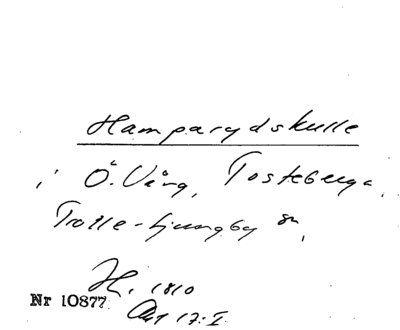 Hamparydskulle
i Ö. Vång, Tosteberga,
Trolle-Ljungby sn,
H. 1810
Nr 10877
Akt 17:I